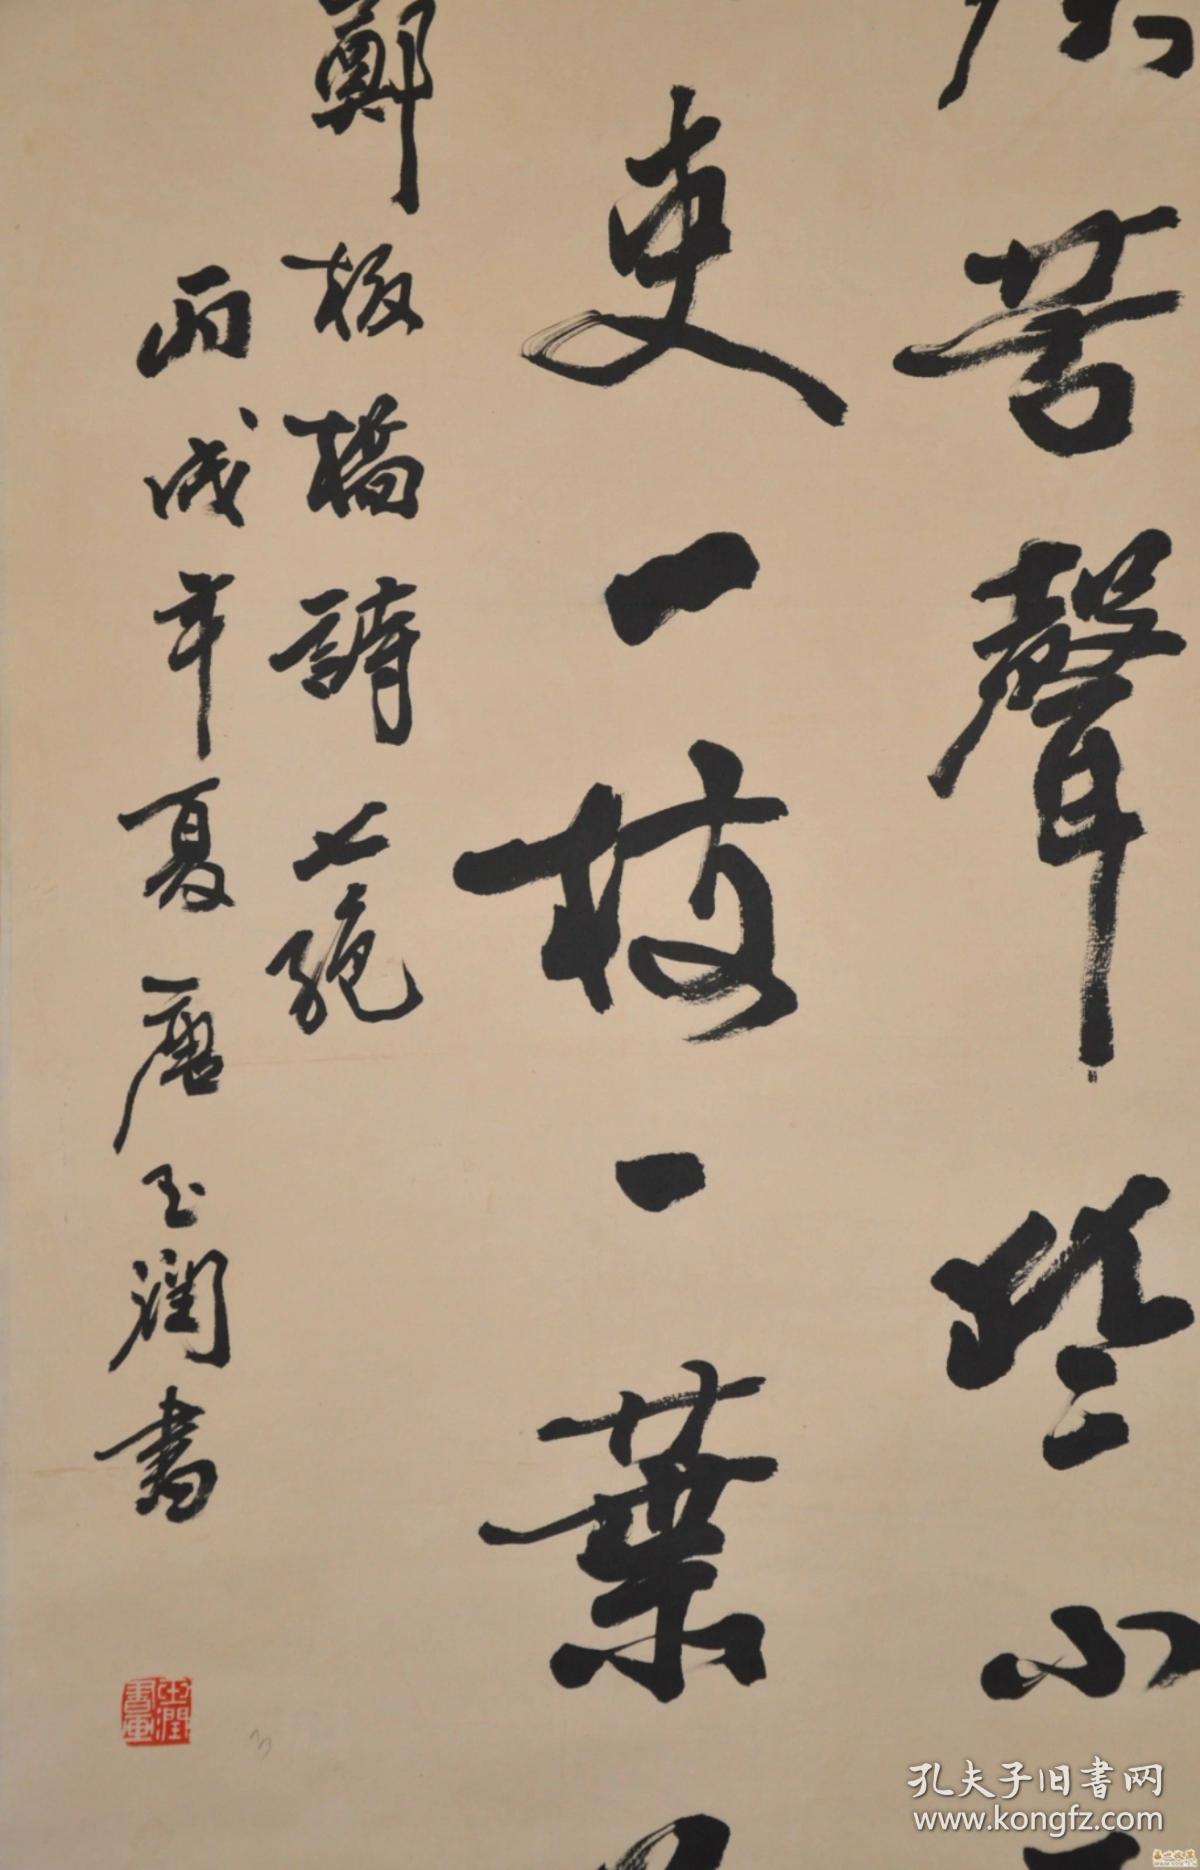 苦聲些小
吏一枝一葉
鄭板橋詩七絕
丙戌年夏唐玉潤書
玉潤
書畫
孔夫子旧书网
www.kongfz.com